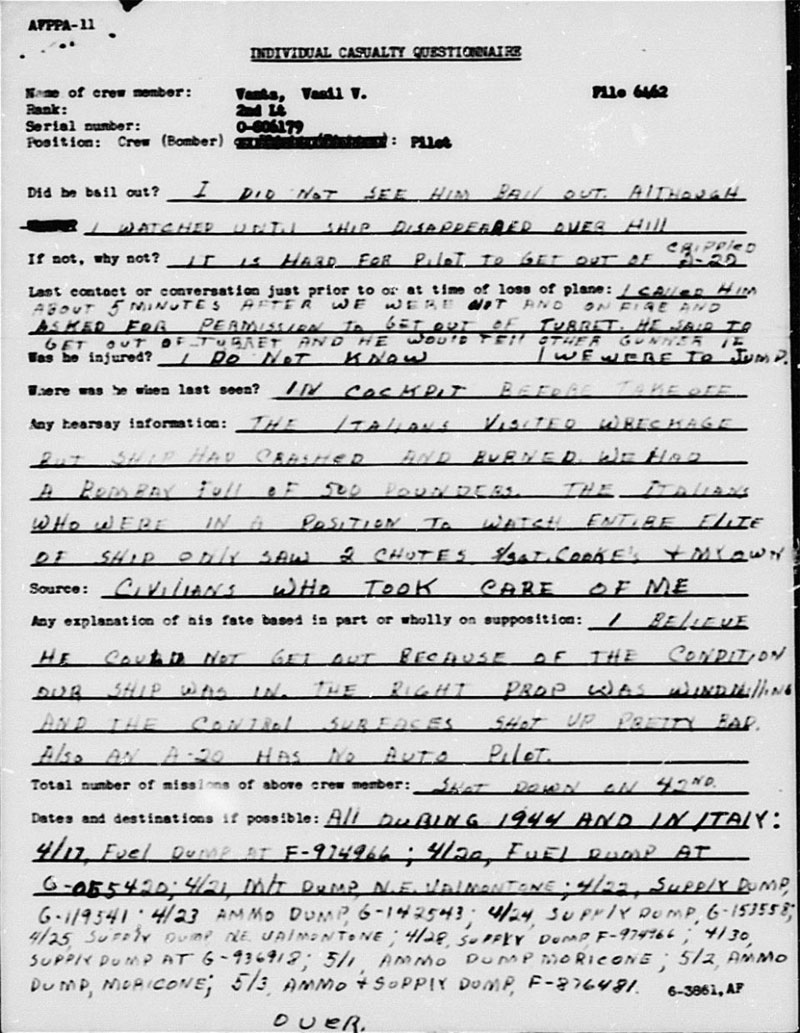 AFPPA-11
INDIVIDUAL CASUALTY QUESTIONNAIRE
Name of crew member: Vasil V. File 6462
Rank: 2nd Lt
Serial number: O-806179
Position: Crew (Bomber) : Pilot
Did he bail out? I DID NOT SEE HIM BAIL OUT. ALTHOUGH
I WATCHED UNTIL SHIP DISAPPEARED OVER HILL
If not, why not? IT IS HARD FOR PILOT TO GET OUT OF CRIPPLED A-20
Last contact or conversation just prior to or at time of loss of plane: I CALLED HIM
ABOUT 5 MINUTES AFTER WE WERE HIT AND ON FIRE AND
ASKED FOR PERMISSION TO GET OUT OF TURRET. HE SAID TO
GET OUT OF TURRET AND HE WOULD TELL OTHER GUNNER IF
Was he injured? I DO NOT KNOW | WE WERE TO JUMP.
Where was he when last seen? IN COCKPIT BEFORE TAKEOFF
Any hearsay information: THE ITALIANS VISITED WRECKAGE
BUT SHIP HAD CRASHED AND BURNED. WE HAD
A BOMBAY FULL OF 500 POUNDERS. THE ITALIANS
WHO WERE IN A POSITION TO WATCH ENTIRE FLITE
OF SHIP ONLY SAW 2 CHUTES S/SGT. COOKE'S + MY OWN
Source: CIVILIANS WHO TOOK CARE OF ME
Any explanation of his fate based in part or wholly on supposition: I BELIEVE
HE COULD NOT GET OUT BECAUSE OF THE CONDITION
OUR SHIP WAS IN. THE RIGHT PROP WAS WINDMILLING
AND THE CONTROL SURFACES SHOT UP PRETTY BAD.
ALSO AN A-20 HAS NO AUTO PILOT.
Total number of missions of above crew member: SHOT DOWN ON 42ND.
Dates and destinations if possible: All DURING 1944 AND IN ITALY:
4/17, FUEL DUMP AT F-974966; 4/20, FUEL DUMP AT
G-055420; 4/21, M/T DUMP, N.E. VALMONTONE; 4/22, SUPPLY DUMP,
G-119541; 4/23 AMMO DUMP, G-142543; 4/24, SUPPLY DUMP, G-153558;
4/25, SUPPLY DUMP N.E. VALMONTONE; 4/28, SUPPLY DUMP F-974966; 4/30,
SUPPLY DUMP AT G-936918; 5/1, AMMO DUMP MORICONE; 5/2, AMMO
DUMP, MORICONE; 5/3, AMMO + SUPPLY DUMP, F-876481. 6-3861, AF
OVER.